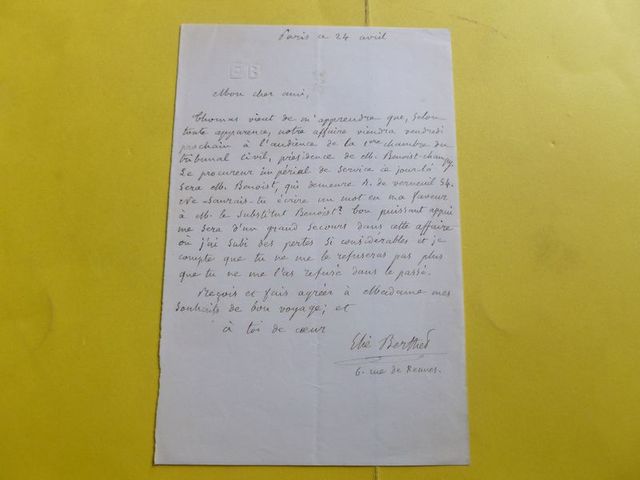 Paris ce 24 avril
EB
Mon cher ami,
Thomas vient de m'apprendre que, selon
toute apparence, notre affaire viendra vendredi
prochain à l'audience de la 1ere chambre du
tribunal civil, présidence de M. Benoist-champy.
Le procureur impérial de service ce jour-là
sera M. Benoist, qui demeure R. de verneuil 54.
Ne saurais-tu écrire un mot en ma faveur
à M. le Substitut Benoist? Ton puissant appui
me sera d'un grand secours dans cette affaire
où j'ai subi des pertes si considérables et je
compte que tu ne me le refuseras pas plus
que tu ne me l'as refusé dans le passé.
Reçois et fais agréer à Madame mes
souhaits de bon voyage; et
à toi de cœur
Elie Berthet
6. rue de Rennes.